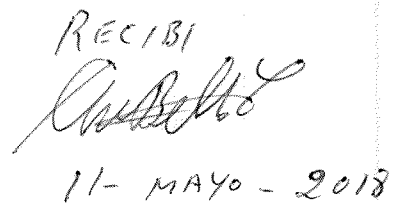 RECIBI
11- MAYO - 2018